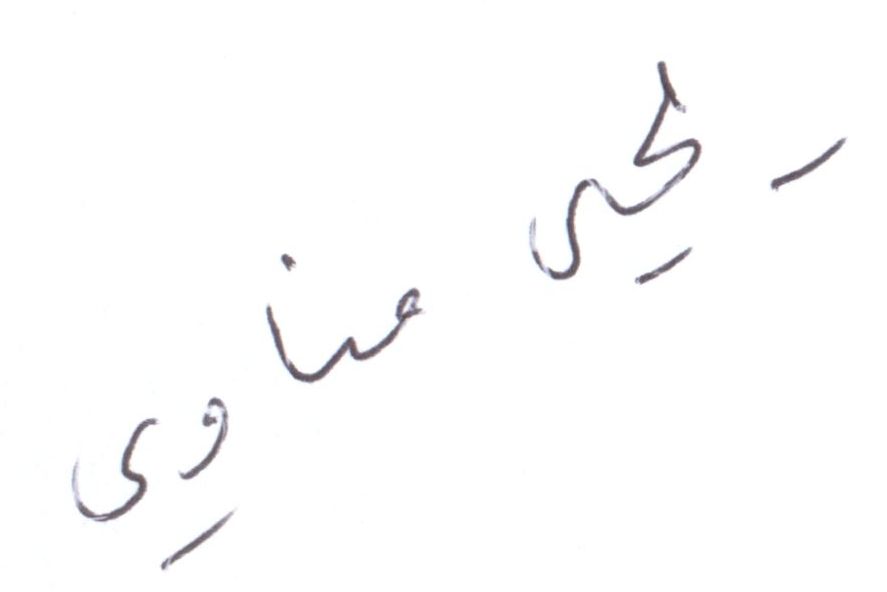 - يحيى مناوي